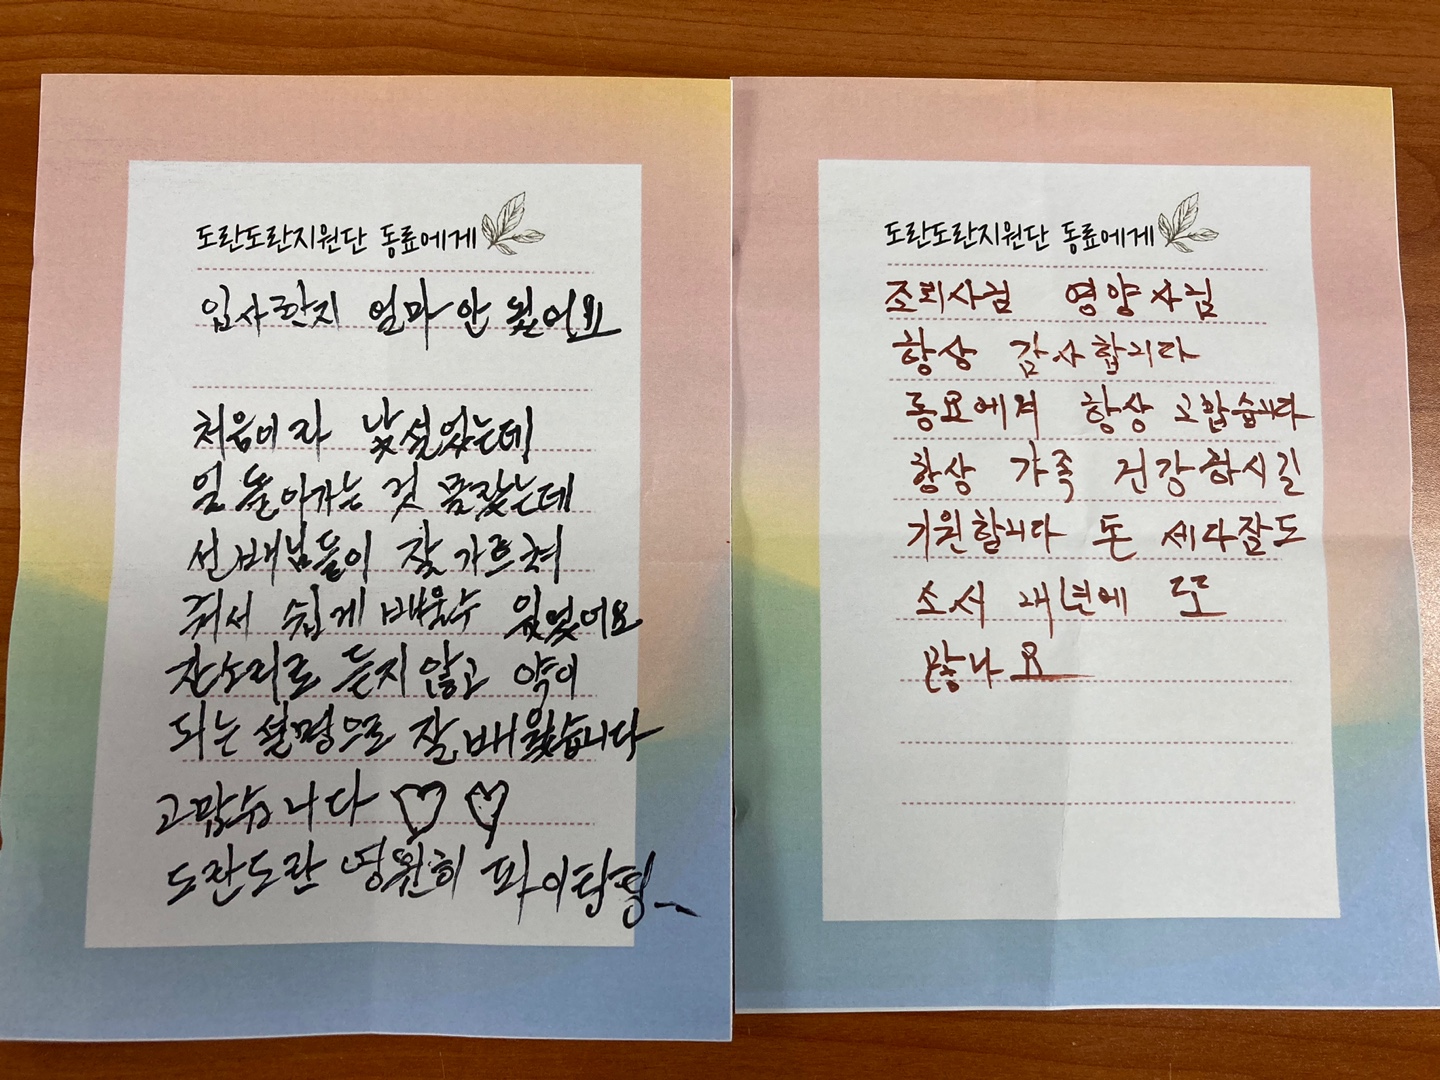 도란도란지원단 동료에게
입사한지 얼마 안 됬어요
처음이라 낯설었는데
일 돌아가는 것
선배님들이 잘 가르쳐
줘서 쉽게 배울수 있었어요
잔소리로 듣지 않고 약이
되는 설명으로 잘 배웠습니다
고맙습니다
도란도란 영원히 파이팅
도란도란지원단 동료에게
조리사님 영양사님
항상 감사합니다
동료에게 항상 고맙습니다
항상 가족 건강하시길
기원합니다 돈 세다잠도
소서